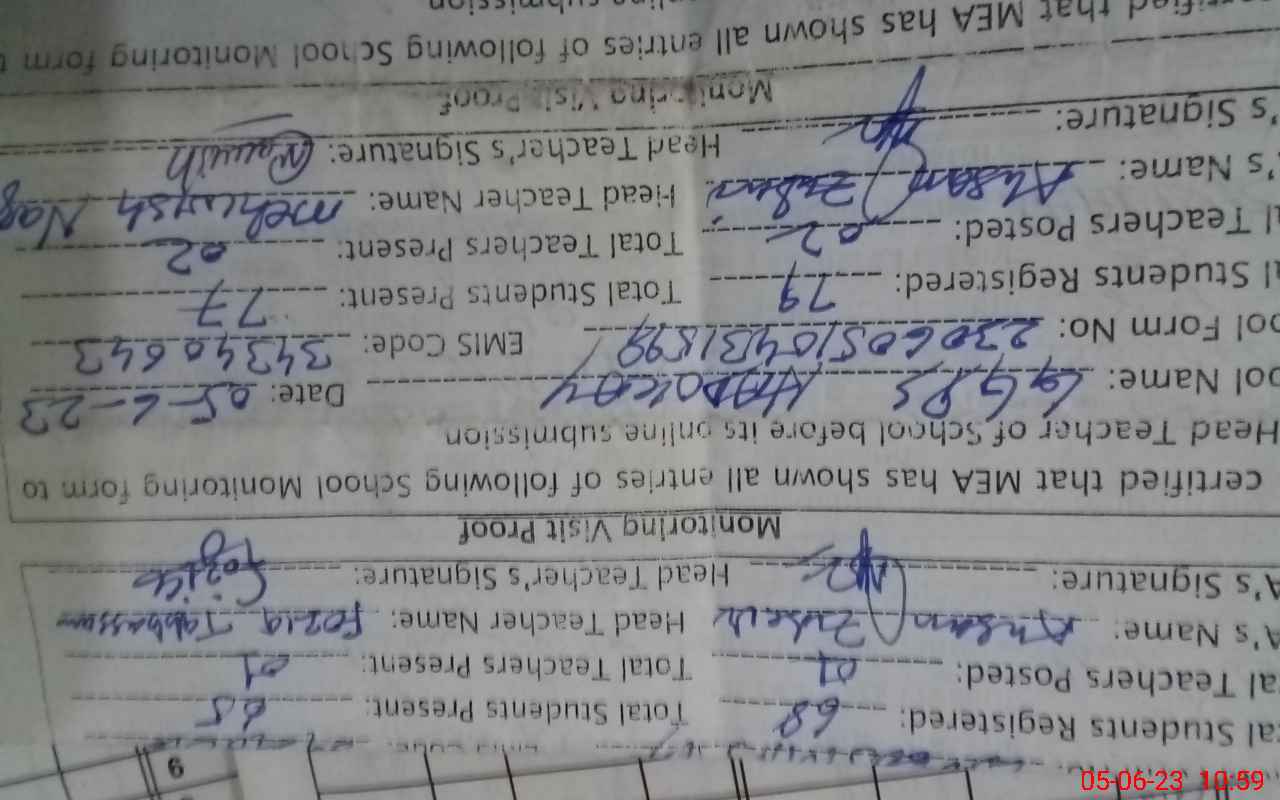 6
al Students Registered: 68 Total Students Present: 65
al Teachers Posted: 01 Total Teachers Present: 01
A's Name: Ahsan Zubair Head Teacher Name: Fozia Tabbassum
A's Signature: Head Teacher's Signature: Fozia
Monitoring Visit Proof
certified that MEA has shown all entries of following School Monitoring form to
Head Teacher of School before its online submission
ool Name: GGPS Date: 05-6-23
ool Form No: EMIS Code: 34340643
l Students Registered: 79 Total Students Present: 77
l Teachers Posted: 02 Total Teachers Present: 02
's Name: Ahsan Zubair Head Teacher Name: Mehwysh Naz
's Signature: Head Teacher's Signature:
Monitoring Visit Proof
rtified that MEA has shown all entries of following School Monitoring form t
nline submission
05-06-23 10:59